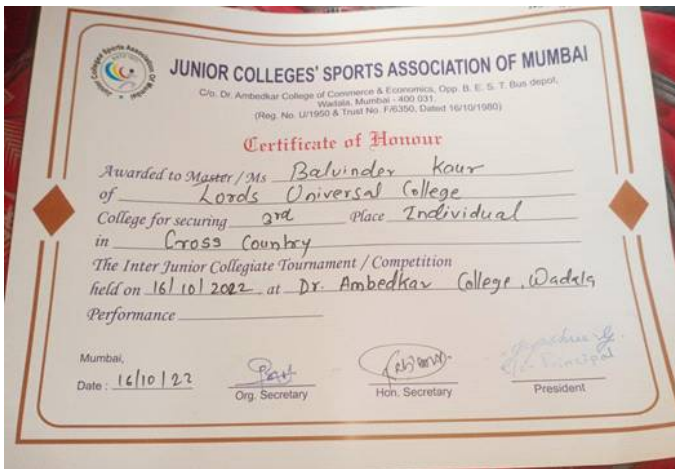 Junior Colleges Sports Association Of Mumbai
JUNIOR COLLEGES' SPORTS ASSOCIATION OF MUMBAI
C/o. Dr. Ambedkar College of Commerce & Economics, Opp. B. E. S. T. Bus depot,
Wadala, Mumbai - 400 031.
(Reg. No. U/1950 & Trust No. F/6350, Dated 16/10/1980)
Certificate of Honour
Awarded to Master / Ms Balvinder Kaur
of Lords Universal College
College for securing 3rd Place Individual
in Cross Country
The Inter Junior Collegiate Tournament / Competition
held on 16/10/2022 at Dr. Ambedkar College, Wadala
Performance
Mumbai,
Date : 16/10/22
Org. Secretary
Hon. Secretary
Principal
President